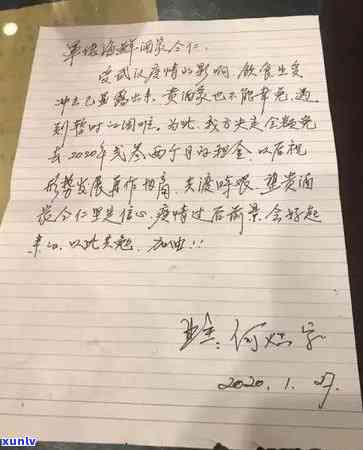 军埔海鲜酒家仝仁
受武汉疫情的影响，飲食业受
冲击已显露出来，贵酒家也不能幸免，遇
到暂时的困难。为此，我方决定全数免
去2020年贰叁两个月的租金，以后视
形势发展再作协商，共渡时艰，望贵酒
家仝仁坚定信心，疫情过后前景会好起
来的，以此共勉，加油！！
业主：何
2020.1.27.
xunlv